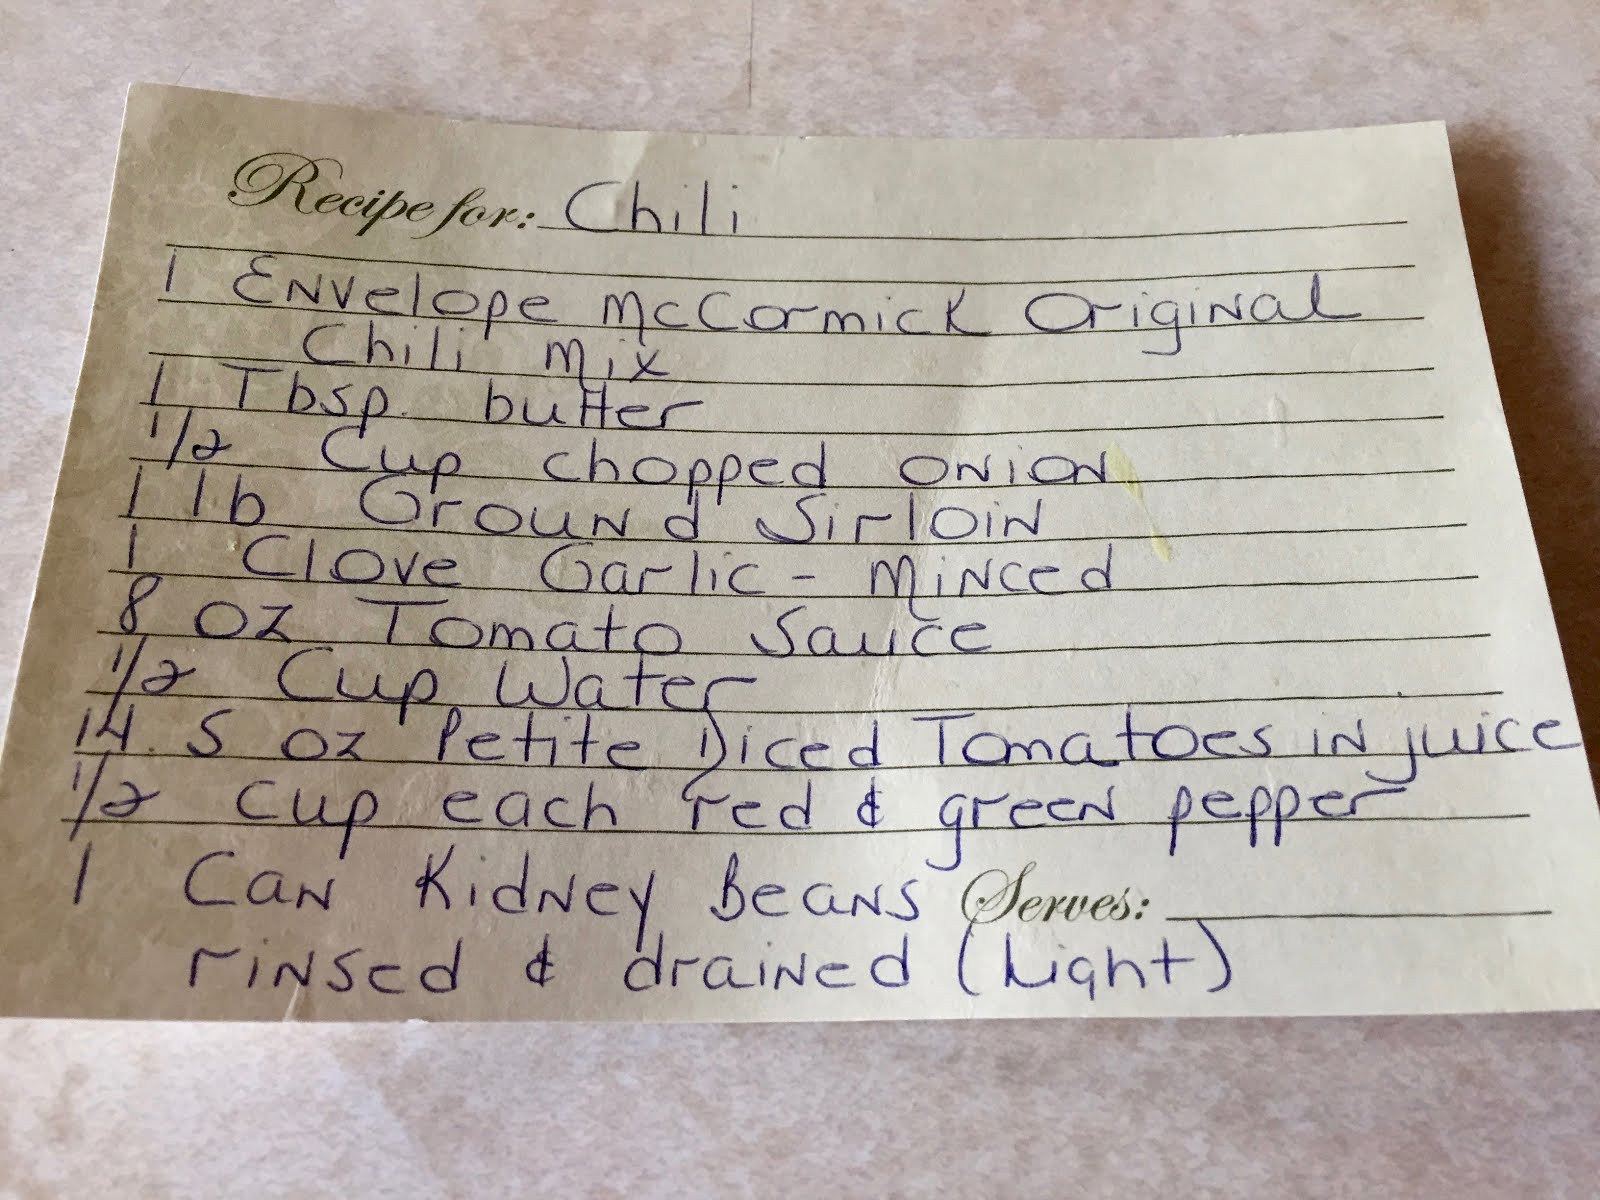 Recipe for: Chili
1 Envelope McCormick Original
Chili Mix
1 Tbsp. butter
1/2 Cup chopped onion
1 lb Ground Sirloin
1 Clove Garlic - Minced
8 oz Tomato Sauce
1/2 Cup Water
14.5 oz Petite Diced Tomatoes in juice
1/2 Cup each red & green pepper
1 Can Kidney Beans Serves:
rinsed & drained (Light)